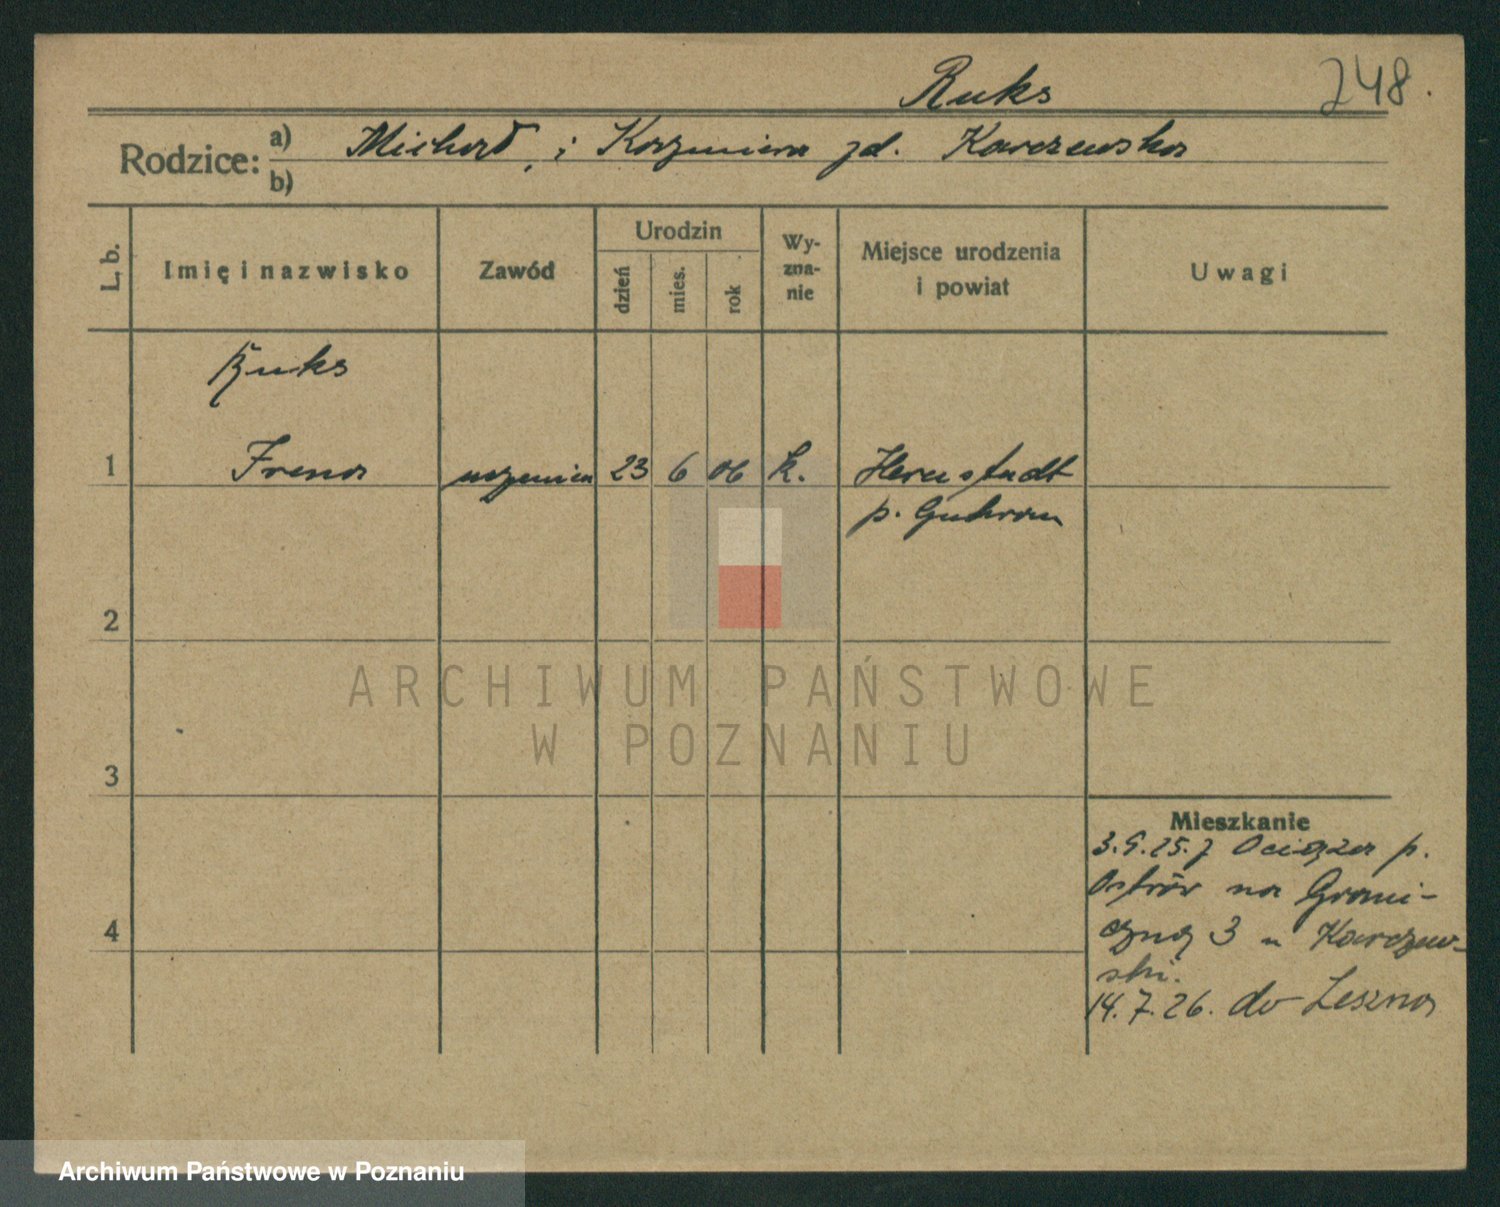 Ruks 248.
Rodzice: a) Michał, i Kazimiera zd. Karczewska
b)
L. b. Imię i nazwisko Zawód Urodzin dzień mies. rok Wy-zna-nie Miejsce urodzenia i powiat Uwagi
Ruks
1 Irena uczenica 23 6 06 k. Herrnstadt
p. Guhrau
2
3
Mieszkanie
3.9.25. z Ociąża p.
Ostrów na Grani-
4 czną 3 u Karczew-
ski.
14.7.26. do Leszna
ARCHIWUM PAŃSTWOWE
W POZNANIU
Archiwum Państwowe w Poznaniu